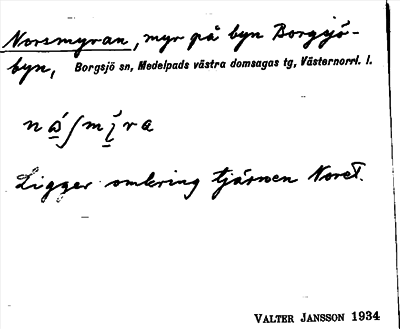 Norsmyran, myr på byn Borgsjö-
byn, Borgsjö sn, Medelpads västra domsagas tg, Västernorrl. l.
Ligger omkring tjärnen Noret.
VALTER JANSSON 1934